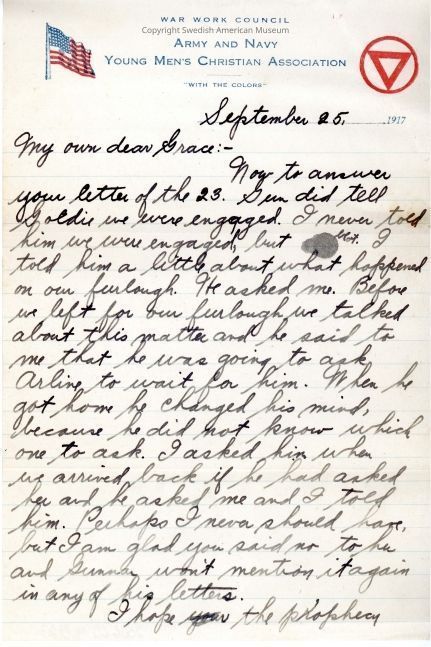 WAR WORK COUNCIL
Copyright Swedish American Museum
ARMY AND NAVY
YOUNG MEN'S CHRISTIAN ASSOCIATION
"WITH THE COLORS"
September 25, 1917
My own dear Grace:-
Now to answer
your letter of the 23. Gun did tell
Goldie we were engaged. I never told
him we were engaged, but Blot. I
told him a little about what happened
on our furlough. He asked me. Before
we left for our furlough we talked
about this matter and he said to
me that he was going to ask
Arline to wait for him. When he
got home he changed his mind,
because he did not know which
one to ask. I asked him when
we arrived back if he had asked
her and he asked me and I told
him. Perhaps I never should have,
but I am glad you said no to her
and Gunnar won't mention it again
in any of his letters.
I hope your the prophecy